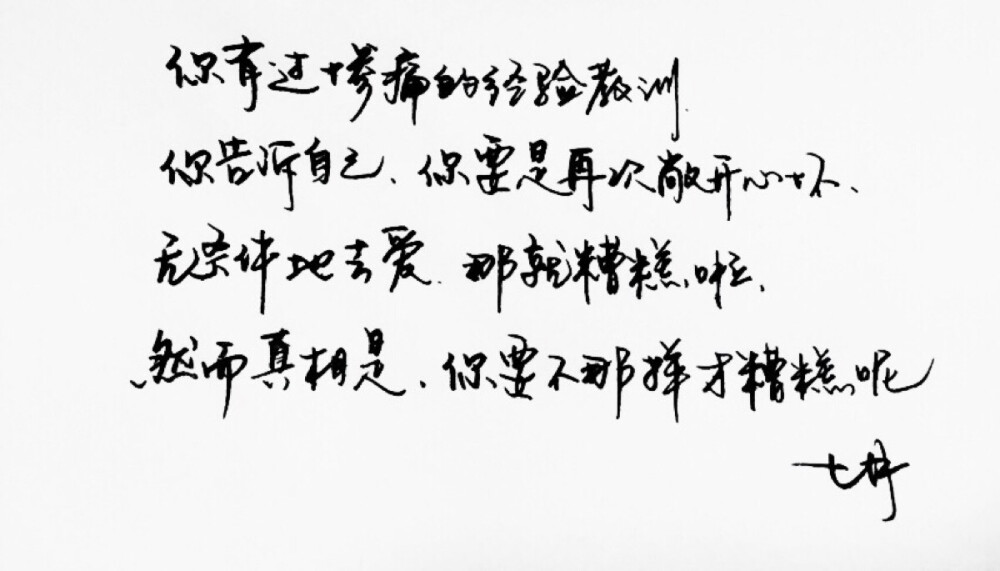 你有过惨痛的经验教训
你告诉自己、你要是再次敞开心怀、
无条件地去爱.那就糟糕啦、
然而真相是、你要不那样才糟糕呢